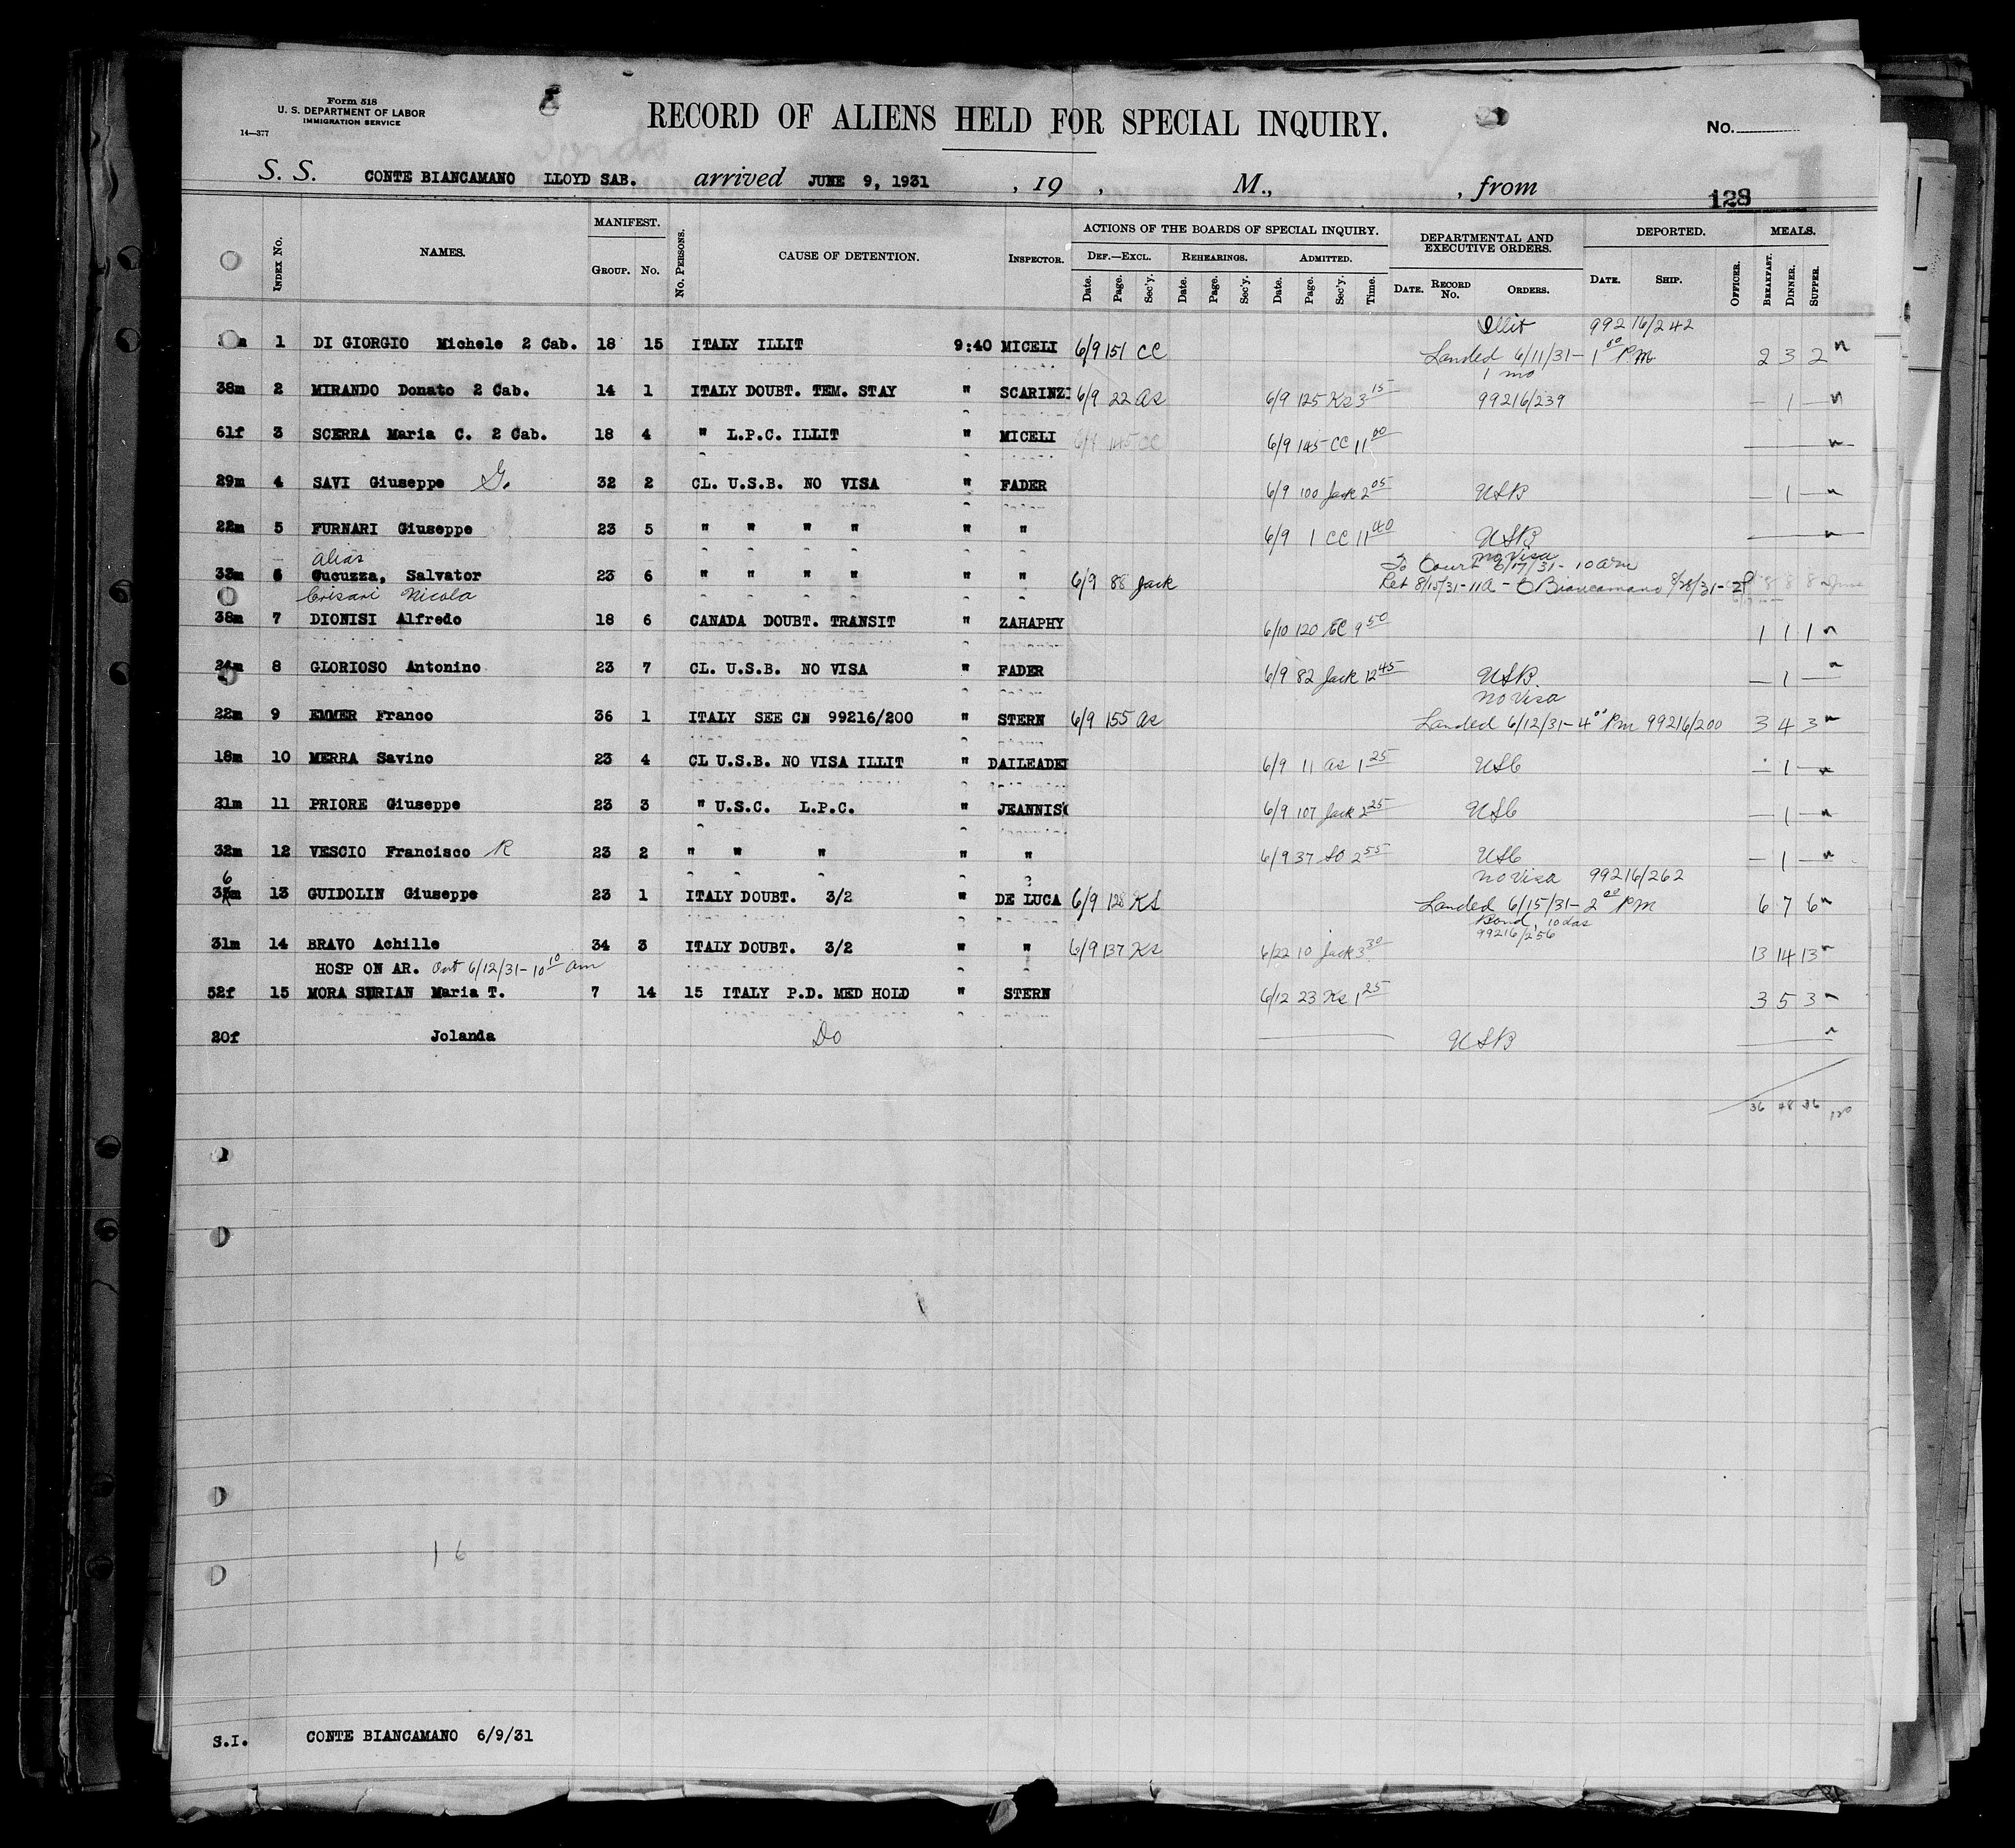 Form 518
U. S. DEPARTMENT OF LABOR
IMMIGRATION SERVICE
14—377
RECORD OF ALIENS HELD FOR SPECIAL INQUIRY.
No.
S. S. CONTE BIANCAMANO LLOYD SAB. arrived JUNE 9, 1931 , 19 , M., , from
128
INDEX NO. NAMES. MANIFEST. GROUP. NO. NO. PERSONS. CAUSE OF DETENTION. INSPECTOR. ACTIONS OF THE BOARDS OF SPECIAL INQUIRY. DEPARTMENTAL AND EXECUTIVE ORDERS. DEPORTED. MEALS.
DEF.—EXCL. REHEARINGS. ADMITTED.
Date. Page. Sec'y. Date. Page. Sec'y. Date. Page. Sec'y. Time. DATE. RECORD NO. ORDERS. DATE. SHIP. OFFICER. BREAKFAST. DINNER. SUPPER.
Illit 99216/242
1 DI GIORGIO Michele 2 Cab. 18 15 ITALY ILLIT 9:40 MICELI 6/9 151 CC Landed 6/11/31- 1 00 PM 2 3 2
1 mo
38m 2 MIRANDO Donato 2 Cab. 14 1 ITALY DOUBT. TEM. STAY " SCARINZI 6/9 22 as 6/9 125 Ks 3 15 99216/239 — 1 —
61f 3 SCERRA Maria C. 2 Cab. 18 4 " L.P.C. ILLIT " MICELI 6/9 145 CC 6/9 145 CC 11 00
29m 4 SAVI Giuseppe G. 32 2 CL. U.S.B. NO VISA " FADER 6/9 100 Jack 2 05 USB — 1 —
22m 5 FURNARI Giuseppe 23 5 " " " " " " 6/9 1 CC 11 40 USB
alias No Visa
To Court 6/17/31- 10 am
33m 6 Cucuzza, Salvator 23 6 " " " " " " 6/9 88 Jack Ret 8/15/31-11a - Biancamano 8/28/31-2P 8 8 8
Crisari Nicola
38m 7 DIONISI Alfredo 18 6 CANADA DOUBT. TRANSIT " ZAHAPHY 6/10 120 EC 9 50 1 1 1
24m 8 GLORIOSO Antonino 23 7 CL. U.S.B. NO VISA " FADER 6/9 82 Jack 12 45 USB — 1 —
No Visa
22m 9 EMMER Franco 36 1 ITALY SEE CN 99216/200 " STERN 6/9 155 as Landed 6/12/31- 4 00 Pm 99216/200 3 4 3
18m 10 MERRA Savino 23 4 CL U.S.B. NO VISA ILLIT " DAILEADER 6/9 11 as 1 25 USC — 1 —
21m 11 PRIORE Giuseppe 23 3 " U.S.C. L.P.C. " JEANNISO 6/9 107 Jack 2 25 USC — 1 —
32m 12 VESCIO Francisco R 23 2 " " " " " 6/9 37 SO 2 55 USC — 1 —
No Visa 99216/262
36m 13 GUIDOLIN Giuseppe 23 1 ITALY DOUBT. 3/2 " DE LUCA 6/9 128 KS Landed 6/15/31- 2 00 PM 6 7 6
Bond, 10 das
99216/256
31m 14 BRAVO Achille 34 3 ITALY DOUBT. 3/2 " " 6/9 137 Ks 6/22 10 Jack 3 30 13 14 13
HOSP ON AR. Out 6/12/31- 10 10 am
52f 15 MORA SURIAN Maria T. 7 14 15 ITALY P.D. MED HOLD " STERN 6/12 23 Ks 1 25 3 5 3
20f Jolanda Do USB
36 48 36 120
16
S.I. CONTE BIANCAMANO 6/9/31